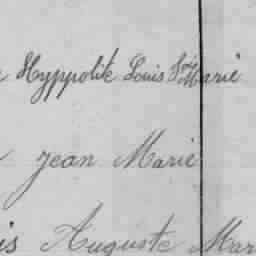 Hyppolite Louis Marie
Jean Marie
is Auguste Mar